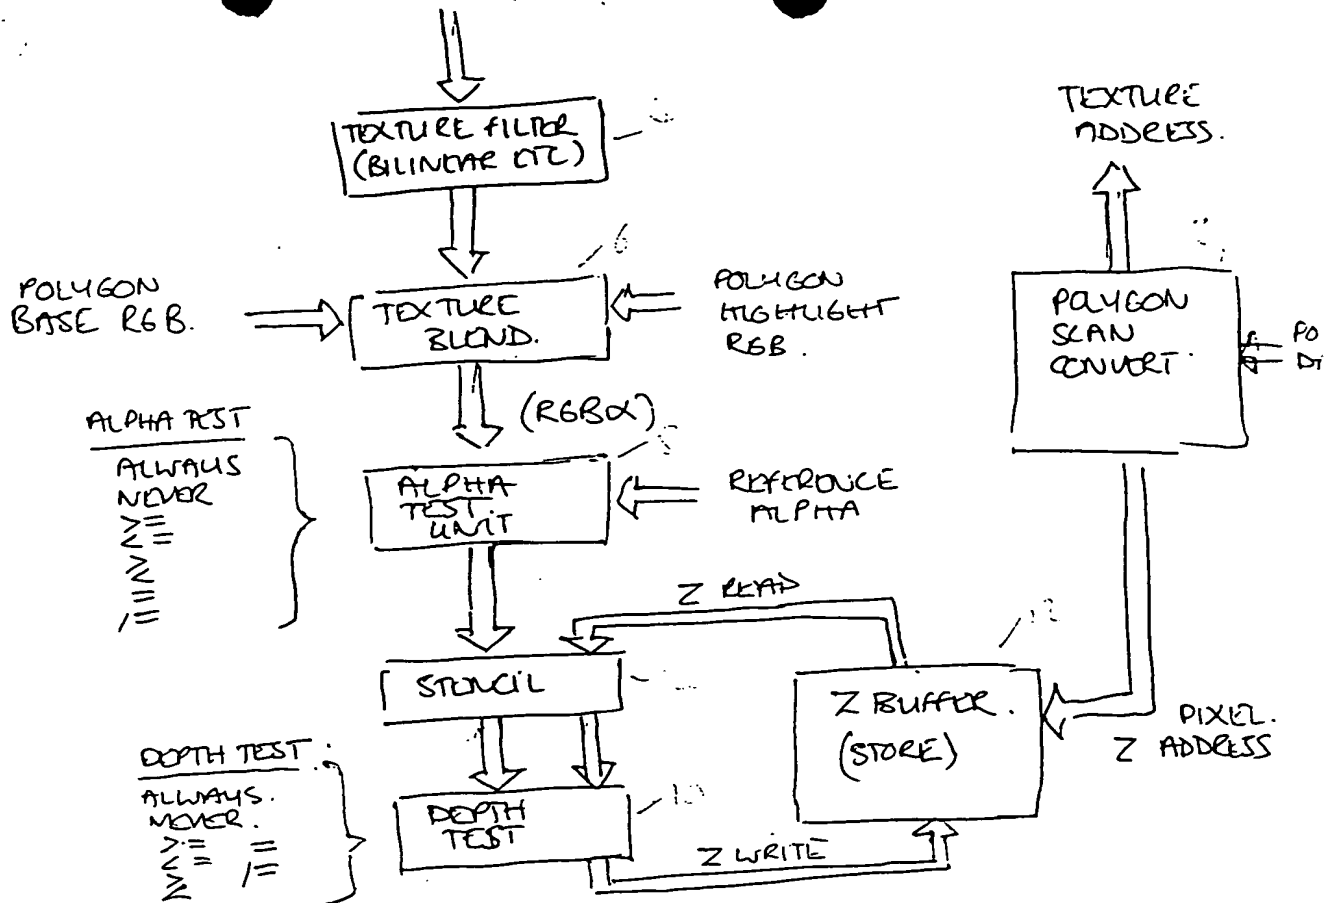 TEXTURE FILTER
(BILINEAR ETC)
TEXTURE
ADDRESS.
6
POLYGON
BASE RGB.
TEXTURE
BLEND.
POLYGON
HIGHLIGHT
RGB.
POLYGON
SCAN
CONVERT.
PO
(RGBα)
ALPHA TEST
ALWAYS
NEVER
>=
<=
>
<
=
/=
ALPHA
TEST
UNIT
REFERENCE
ALPHA
Z READ
STENCIL
12
Z BUFFER.
(STORE)
PIXEL.
Z ADDRESS
DEPTH TEST.
ALWAYS.
NEVER.
>= =
<= /=
>
<
DEPTH
TEST
10
Z WRITE